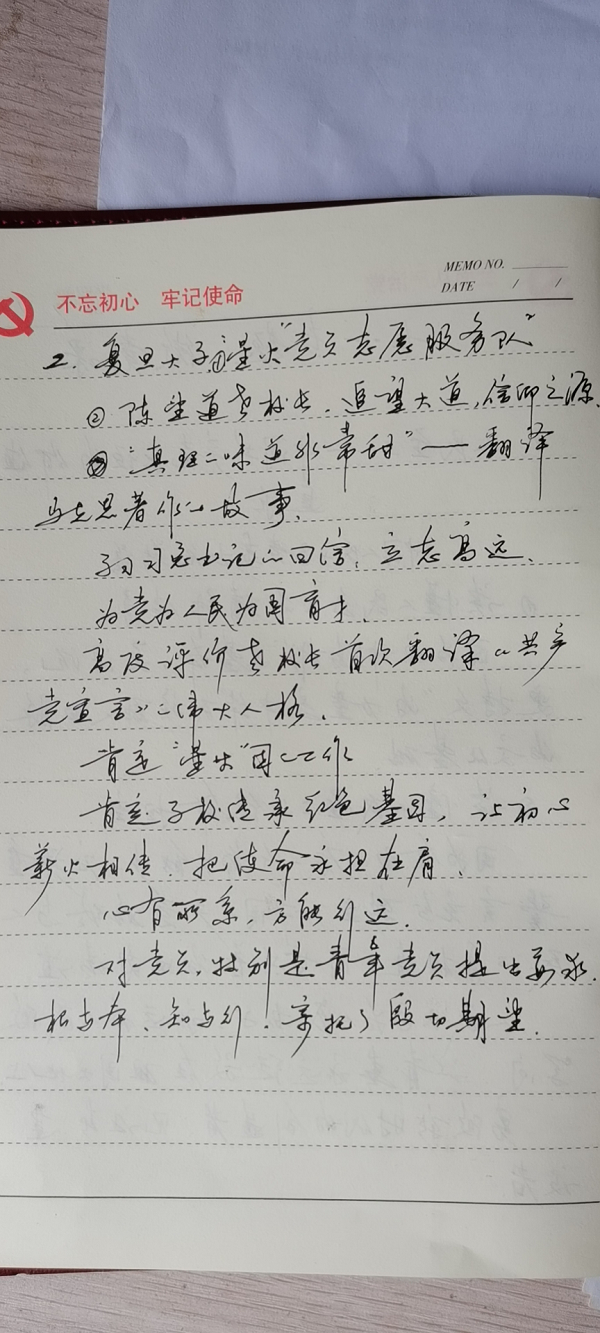 MEMO NO.
DATE / /
不忘初心 牢记使命
2. 复旦大学①星火“党员志愿服务队”
② 陈望道老校长，追望大道，信仰之源
③ “真理的味道非常甜” — 翻译
马克思著作的故事，
学习习总书记的回信，立志高远、
为党为人民为国育才，
高度评价老校长首次翻译《共产
党宣言》的伟大人格，
肯定“星火”团的工作
肯定学校传承红色基因，让初心
薪火相传，把使命永担在肩、
心有所系，方能行远。
对党员，特别是青年党员提出要求，
根与本、知与行！寄托了殷切期望。